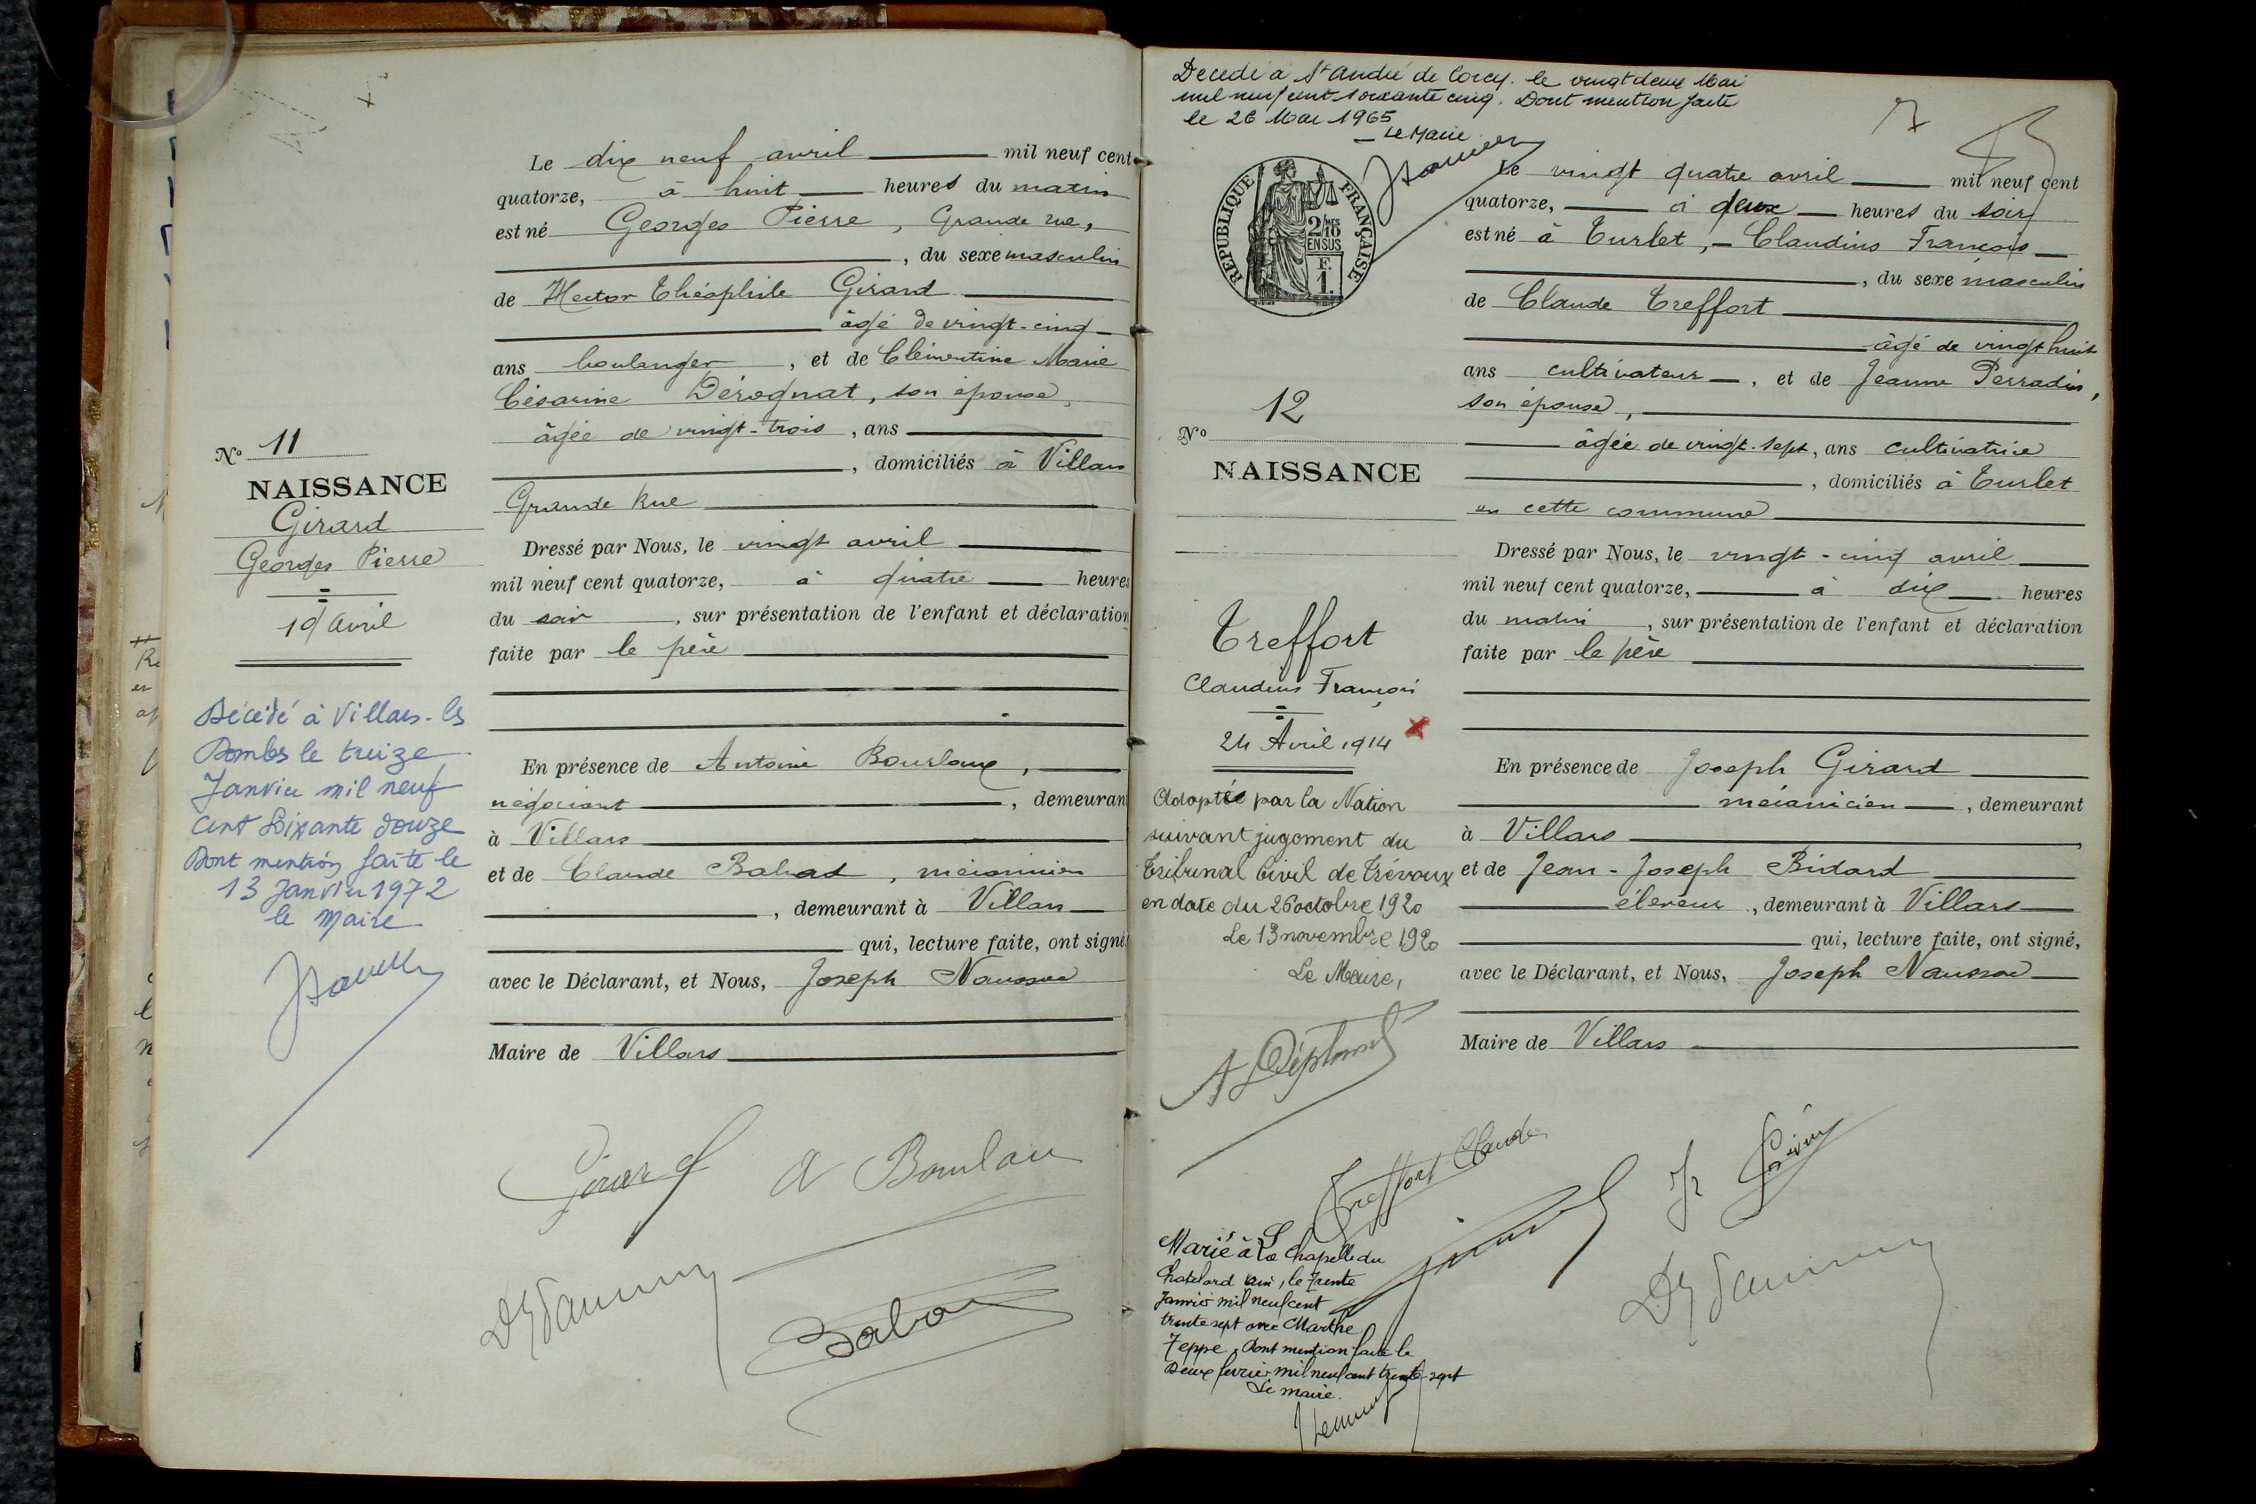 Le dix neuf avril mil neuf cent
quatorze, à huit heures du matin
est né Georges Pierre, Grande rue,
, du sexe masculin
de Hector Théophile Girard
âgé de vingt-cinq
ans boulanger, et de Clémentine Marie
Césarine Dérognat, son épouse,
âgée de vingt-trois, ans
, domiciliés à Villars
Grande Rue
Dressé par Nous, le vingt avril
mil neuf cent quatorze, à quatre heures
du soir, sur présentation de l'enfant et déclaration
faite par le père
En présence de Antoine
négociant, demeurant
à Villars
et de Claude, mécanicien
, demeurant à Villars
qui, lecture faite, ont signé
avec le Déclarant, et Nous, Joseph
Maire de Villars
Girard
No 11
NAISSANCE
Girard
Georges Pierre
19 avril
Décédé à Villars-les
Dombes le treize
Janvier mil neuf
cent soixante douze
Dont mention faite le
13 Janvier 1972
le Maire
Décédé à St André de Corcy. le vingt deux Mai
mil neuf cent soixante cinq. Dont mention faite
le 26 Mai 1965
Le Maire
7
REPUBLIQUE FRANÇAISE
2/10 MES
EN SUS
F.
1.
No 12
NAISSANCE
Treffort
Claudius François
24 Avril 1914
Adopté par la Nation
suivant jugement du
Tribunal Civil de Trévoux
en date du 26 octobre 1920
Le 13 novembre 1920
Le Maire,
Le vingt quatre avril mil neuf cent
quatorze, à deux heures du soir
est né à Turlet, Claudius François
, du sexe masculin
de Claude Treffort
âgé de vingt huit
ans cultivateur, et de Jeanne Perradin,
son épouse,
âgée de vingt-sept, ans cultivatrice
, domiciliés à Turlet
en cette commune
Dressé par Nous, le vingt-cinq avril
mil neuf cent quatorze, à dix heures
du matin, sur présentation de l'enfant et déclaration
faite par le père
En présence de Joseph Girard
mécanicien, demeurant
à Villars
et de Jean-Joseph
éleveur, demeurant à Villars
qui, lecture faite, ont signé,
avec le Déclarant, et Nous, Joseph
Maire de Villars
Treffort Claude
Marié à La Chapelle du
Chatelard Ain, le trente
Janvier mil neuf cent
trente sept avec Marthe
Jeppe. Dont mention faite le
Deux février mil neuf cent trente-sept
Le maire.